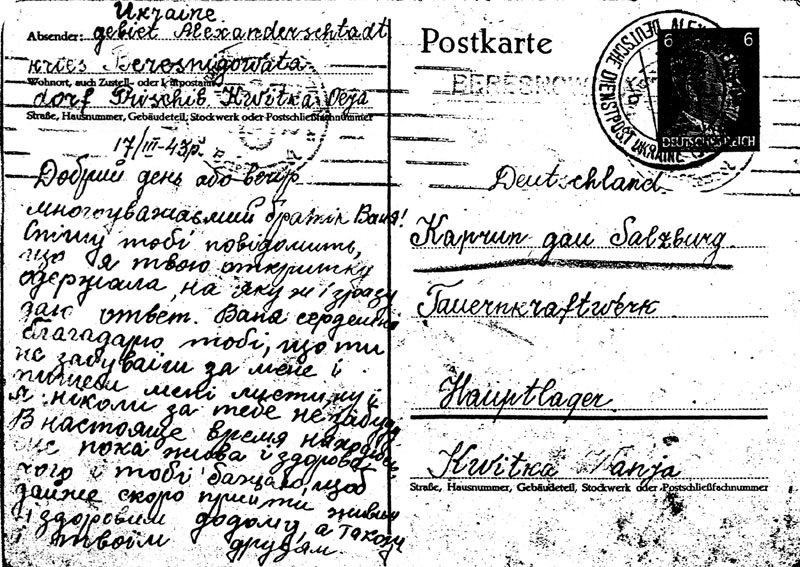 Ukraine
Absender: gebiet Alexanderschtadt
kries Beresnigowata
Wohnort, auch Zustell- oder Leitpostamt
dorf Prischib Kwitka Olja
Straße, Hausnummer, Gebäudeteil, Stockwerk oder Postschließfachnummer
17/III-43р.
Добрий день або вечір
многоуважаємий братік Ваня!
Спішу тобі повідомить,
що я твою открытку
одержала, на яку ж і зразу
даю ответ. Ваня сердечно
благадарю тобі, що ти
не забуваїш за мене і
пишеш мені листики і
я ніколи за тебе не забуду
В настояще время нахожусь
ще пока жива і здорова,
чого і тобі бажаю, щоб
дайже скоро прийти живим
і здоровим додому, а також
і твоїм друзям.
Postkarte
BERESNOW
DEUTSCHE DIENSTPOST UKRAINE
6 6
DEUTSCHES REICH
Deutschland
Kaprun gau Salzburg
Tauernkraftwerk
Hauptlager
Kwitka Wanja
Straße, Hausnummer, Gebäudeteil, Stockwerk oder Postschließfachnummer